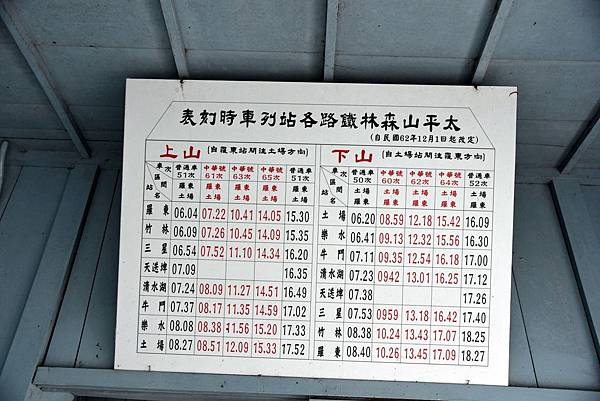 太平山森林鐵路各站列車時刻表
(自民國62年12月1日起改定)
上山 (自羅東站開往土場方向)
車次 普通車 中華號 中華號 中華號 普通車
51次 61次 63次 65次 51次
區間 羅東 羅東 羅東 羅東 羅東
站名 土場 土場 土場 土場 土場
羅東 06.04 07.22 10.41 14.05 15.30
竹林 06.09 07.26 10.45 14.09 15.35
三星 06.54 07.52 11.10 14.34 16.20
天送埤 07.09 16.35
清水湖 07.24 08.09 11.27 14.51 16.49
牛鬥 07.37 08.17 11.35 14.59 17.02
樂水 08.08 08.38 11.56 15.20 17.33
土場 08.27 08.51 12.09 15.33 17.52
下山 (自土場站開往羅東方向)
車次 普通車 中華號 中華號 中華號 普通車
50次 60次 62次 64次 52次
區間 土場 土場 土場 土場 土場
站名 羅東 羅東 羅東 羅東 羅東
土場 06.20 08.59 12.18 15.42 16.09
樂水 06.41 09.13 12.32 15.56 16.30
牛鬥 07.11 09.35 12.54 16.18 17.00
清水湖 07.23 0942 13.01 16.25 17.12
天送埤 07.38 17.26
三星 07.53 0959 13.18 16.42 17.40
竹林 08.38 10.24 13.43 17.07 18.25
羅東 08.40 10.26 13.45 17.09 18.27